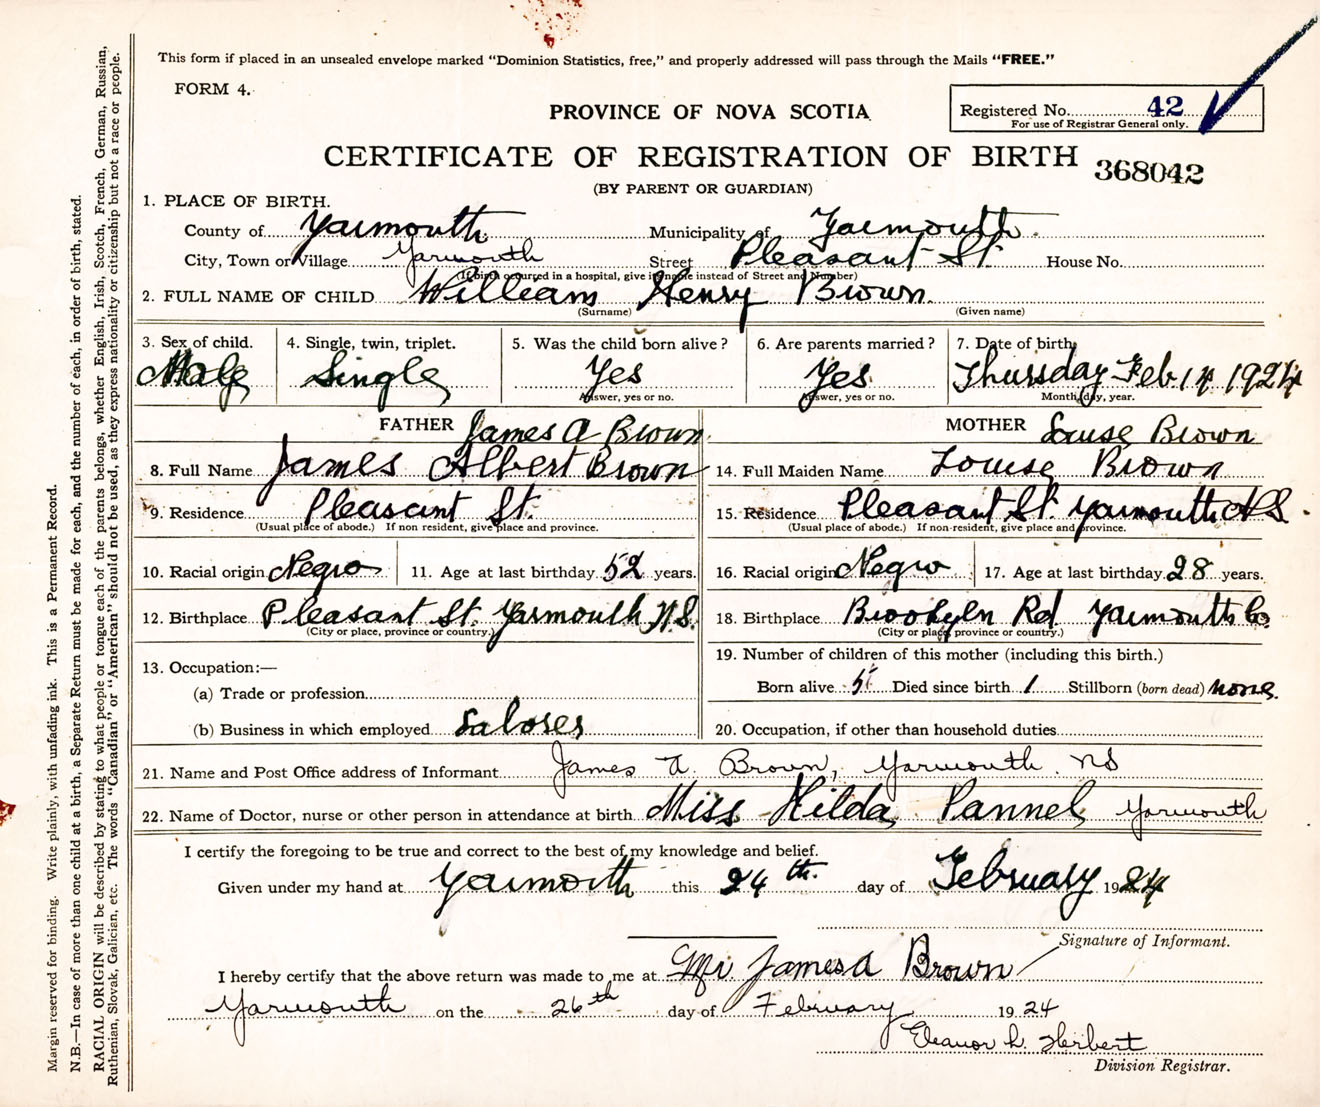 This form if placed in an unsealed envelope marked "Dominion Statistics, free," and properly addressed will pass through the Mails "FREE."
FORM 4.
PROVINCE OF NOVA SCOTIA
Registered No. 42
For use of Registrar General only.
CERTIFICATE OF REGISTRATION OF BIRTH 368042
(BY PARENT OR GUARDIAN)
1. PLACE OF BIRTH.
County of Yarmouth Municipality of Yarmouth
City, Town or Village Yarmouth Street Pleasant St. House No.
(If birth occurred in a hospital, give its name instead of Street and Number)
2. FULL NAME OF CHILD William Henry Brown
(Surname) (Given name)
3. Sex of child. 4. Single, twin, triplet. 5. Was the child born alive? 6. Are parents married? 7. Date of birth
Male Single Yes Yes Thursday Feb. 14 1924
Answer, yes or no. Answer, yes or no. Month, day, year.
FATHER James A Brown MOTHER Louise Brown
8. Full Name James Albert Brown 14. Full Maiden Name Louise Brown
9. Residence Pleasant St. 15. Residence Pleasant St. Yarmouth N.S.
(Usual place of abode.) If non resident, give place and province. (Usual place of abode.) If non-resident, give place and province.
10. Racial origin Negro 11. Age at last birthday 52 years. 16. Racial origin Negro 17. Age at last birthday 28 years.
12. Birthplace Pleasant St. Yarmouth N.S. 18. Birthplace Brooklyn Rd Yarmouth Co.
(City or place, province or country.) (City or place, province or country.)
13. Occupation:— 19. Number of children of this mother (including this birth.)
(a) Trade or profession Born alive 5 Died since birth 1 Stillborn (born dead) none.
(b) Business in which employed 20. Occupation, if other than household duties
21. Name and Post Office address of Informant James A. Brown, Yarmouth. NS
22. Name of Doctor, nurse or other person in attendance at birth Miss Hilda Pannel Yarmouth
I certify the foregoing to be true and correct to the best of my knowledge and belief.
Given under my hand at Yarmouth this 24 th. day of February 1924
Signature of Informant.
I hereby certify that the above return was made to me at Mr James A Brown
Yarmouth on the 26th day of February 1924
Eleanor L. Herbert
Division Registrar.
Margin reserved for binding. Write plainly, with unfading ink. This is a Permanent Record.
N.B.—In case of more than one child at a birth, a Separate Return must be made for each, and the number of each, in order of birth, stated.
RACIAL ORIGIN will be described by stating to what people or tongue each of the parents belongs, whether English, Irish, Scotch, French, German, Russian,
Ruthenian, Slovak, Galician, etc. The words "Canadian" or "American" should not be used, as they express nationality or citizenship but not a race or people.